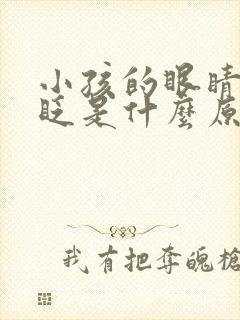 小孩的眼睛
眨是什麼原
我有把奪魄槍